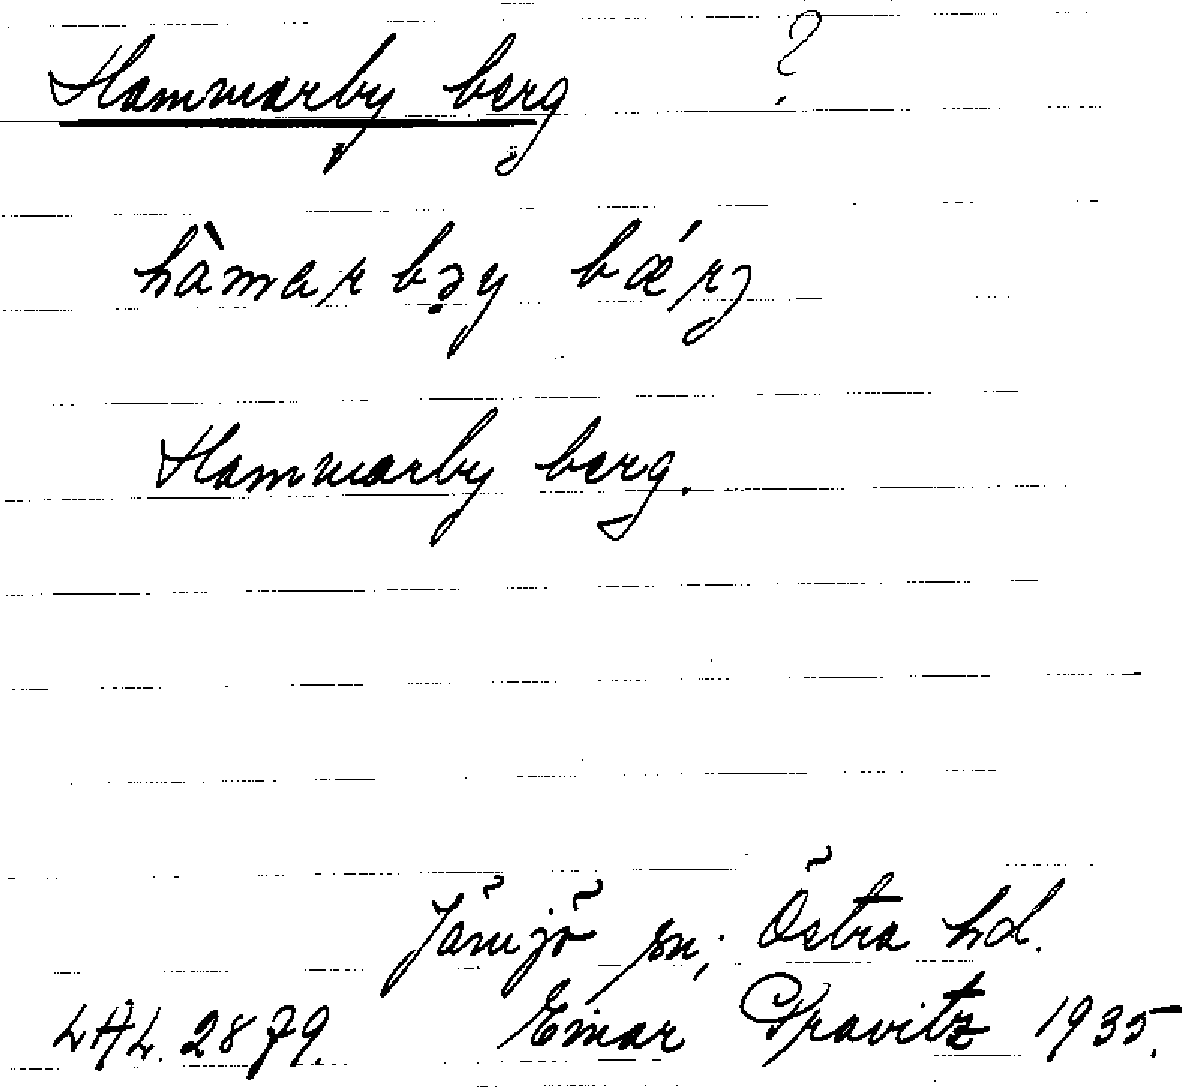 Hammarby berg ?
hàmarbəy bǽrʒ
Hammarby berg.
Jämjö sn; Östra hd.
LAL. 2879. Einar Gravitz 1935.